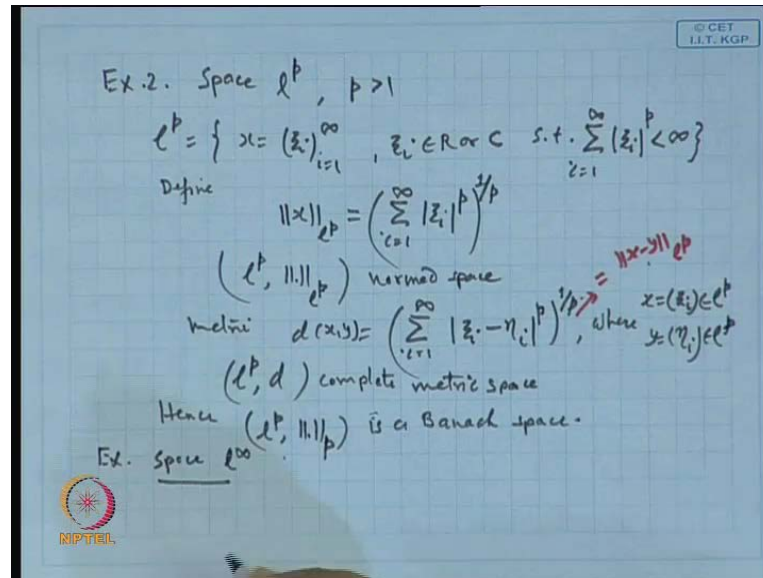 © CET
I.I.T. KGP
Ex.2. Space l^p, p>1
l^p = { x = (ξ_i)_{i=1}^∞, ξ_i ∈ R or C s.t. ∑_{i=1}^∞ |ξ_i|^p < ∞}
Define
||x||_{l^p} = (∑_{i=1}^∞ |ξ_i|^p)^{1/p}
(l^p, ||.||_{l^p}) normed space
= ||x-y||_{l^p}
metric d(x,y) = (∑_{i=1}^∞ |ξ_i - η_i|^p)^{1/p}, where x=(ξ_i)∈l^p
y=(η_i)∈l^p
(l^p, d) complete metric space
Hence (l^p, ||.||_p) is a Banach space.
Ex. Space l^∞
NPTEL